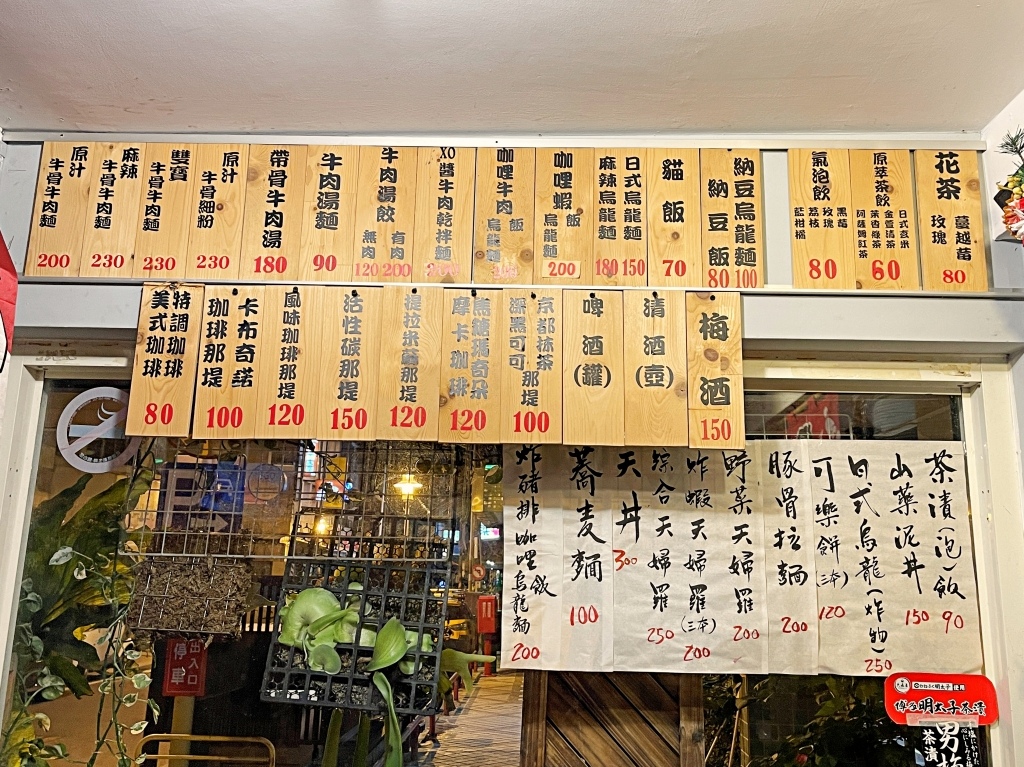 花茶
蔓越莓
玫瑰
80
原萃茶飲
日式玄米
金萱清茶
茉香綠茶
阿薩姆紅茶
60
氣泡飲
黑莓
玫瑰
荔枝
藍柑橘
80
納豆烏龍麵
100
納豆飯
80
貓飯
70
日式烏龍麵
150
麻辣烏龍麵
180
咖哩蝦
飯
烏龍麵
200
咖哩牛肉
飯
烏龍麵
XO醬牛肉乾拌麵
牛肉湯飯
有肉
200
無肉
120
牛肉湯麵
90
帶骨牛肉湯
180
原汁
牛骨細粉
230
雙寶
牛骨牛肉麵
230
麻辣
牛骨牛肉麵
230
原汁
牛骨牛肉麵
200
梅酒
150
清酒(壺)
啤酒(罐)
京都抹茶
深黑可可
那堤
100
焦糖瑪奇朵
摩卡咖啡
120
提拉米蘇那堤
120
活性碳那堤
150
風味咖啡那堤
120
卡布奇諾
咖啡那堤
100
特調咖啡
美式咖啡
80
茶漬(泡)飯
90
山藥泥丼
150
日式烏龍(炸物)
250
可樂餅(三本)
120
豚骨拉麵
200
野菜天婦羅
200
炸蝦天婦羅(三本)
200
綜合天婦羅
250
天丼
300
蕎麦麵
100
炸豬排咖哩
飯
烏龍麵
200
出入口
停車
明太子茶漬
茶漬